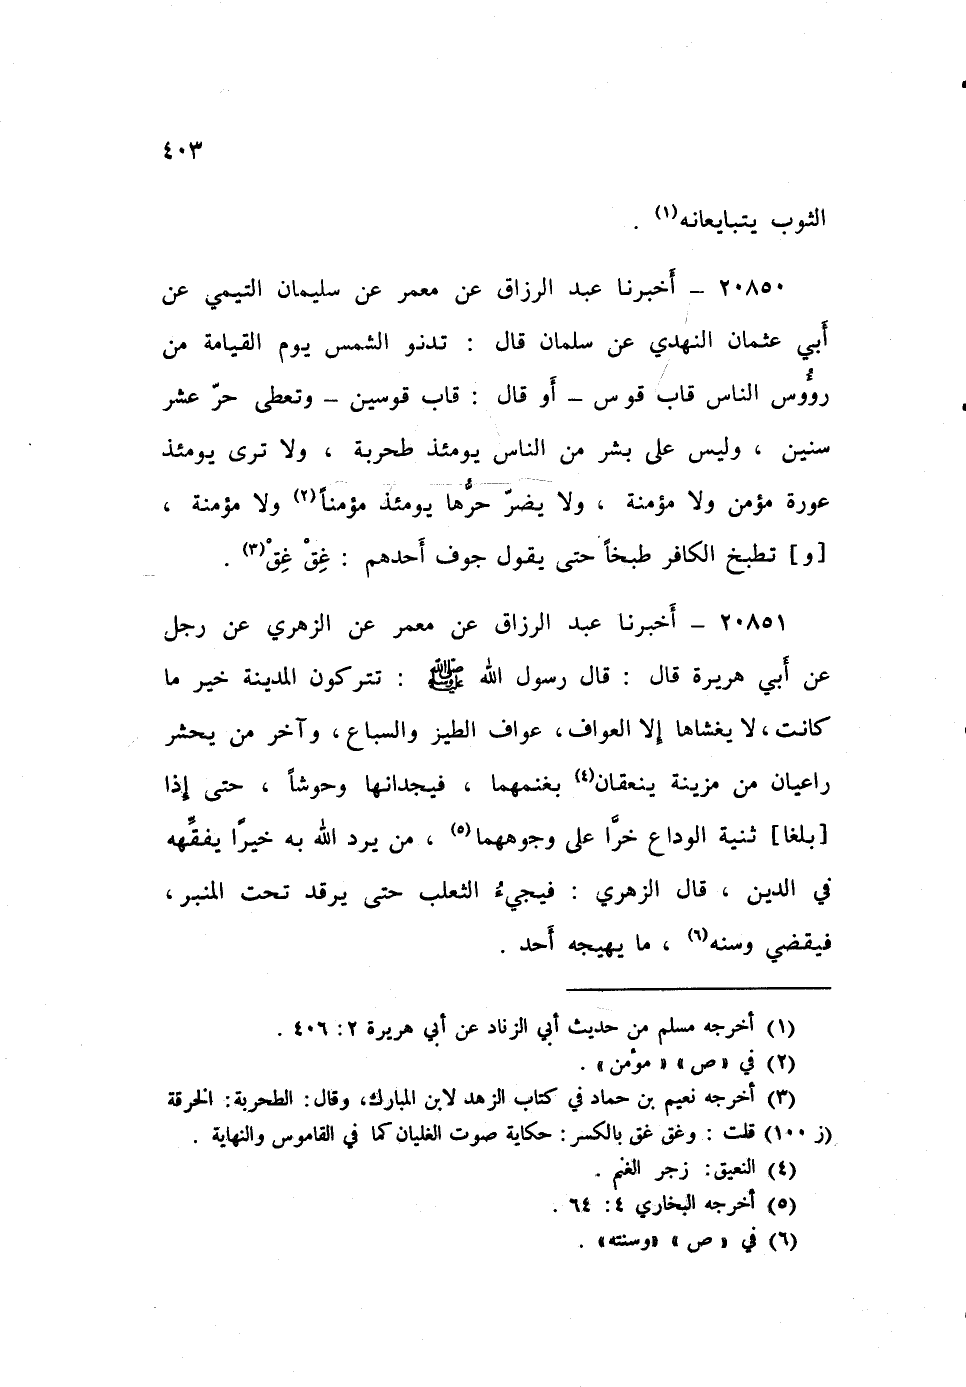 ٤٠٣
الثوب يتبايعانه(١) .
٢٠٨٥٠ ــ أَخبرنا عبد الرزاق عن معمر عن سليمان التيمي عن
أَبي عثمان النهدي عن سلمان قال : تدنو الشمس يوم القيامة من
رؤُوس الناس قاب قوس ــ أَو قال : قاب قوسين ــ وتعطى حرّ عشر
سنين ، وليس على بشر من الناس يومئذ طحربة ، ولا ترى يومئذ
عورة مؤمن ولا مؤمنة ، ولا يضرّ حرُّها يومئذ مؤمناً(٢) ولا مؤمنة ،
[و] تطبخ الكافر طبخاً حتى يقول جوف أَحدهم : غِقْ غِقْ(٣) .
٢٠٨٥١ ــ أَخبرنا عبد الرزاق عن معمر عن الزهري عن رجل
عن أَبي هريرة قال : قال رسول الله ﷺ : تتركون المدينة خير ما
كانت، لا يغشاها إلا العواف، عواف الطيز والسباع، وآخر من يحشر
راعيان من مزينة ينعقان(٤) بغنمهما ، فيجدانها وحوشاً ، حتى إذا
[بلغا] ثنية الوداع خرَّا على وجوههما(٥) ، من يرد الله به خيرًا يفقِّهه
في الدين ، قال الزهري : فيجيءُ الثعلب حتى يرقد تحت المنبر،
فيقضي وسنه(٦) ، ما يهيجه أَحد .
(١) أخرجه مسلم من حديث أبي الزناد عن أبي هريرة ٢: ٤٠٦ .
(٢) في «ص» «مؤمن» .
(٣) أخرجه نعيم بن حماد في كتاب الزهد لابن المبارك، وقال: الطحربة: الخرقة
(ز ١٠٠) قلت : وغق غق بالكسر : حكاية صوت الغليان كما في القاموس والنهاية .
(٤) النعيق: زجر الغنم .
(٥) أخرجه البخاري ٤: ٦٤ .
(٦) في «ص» «وسنته» .